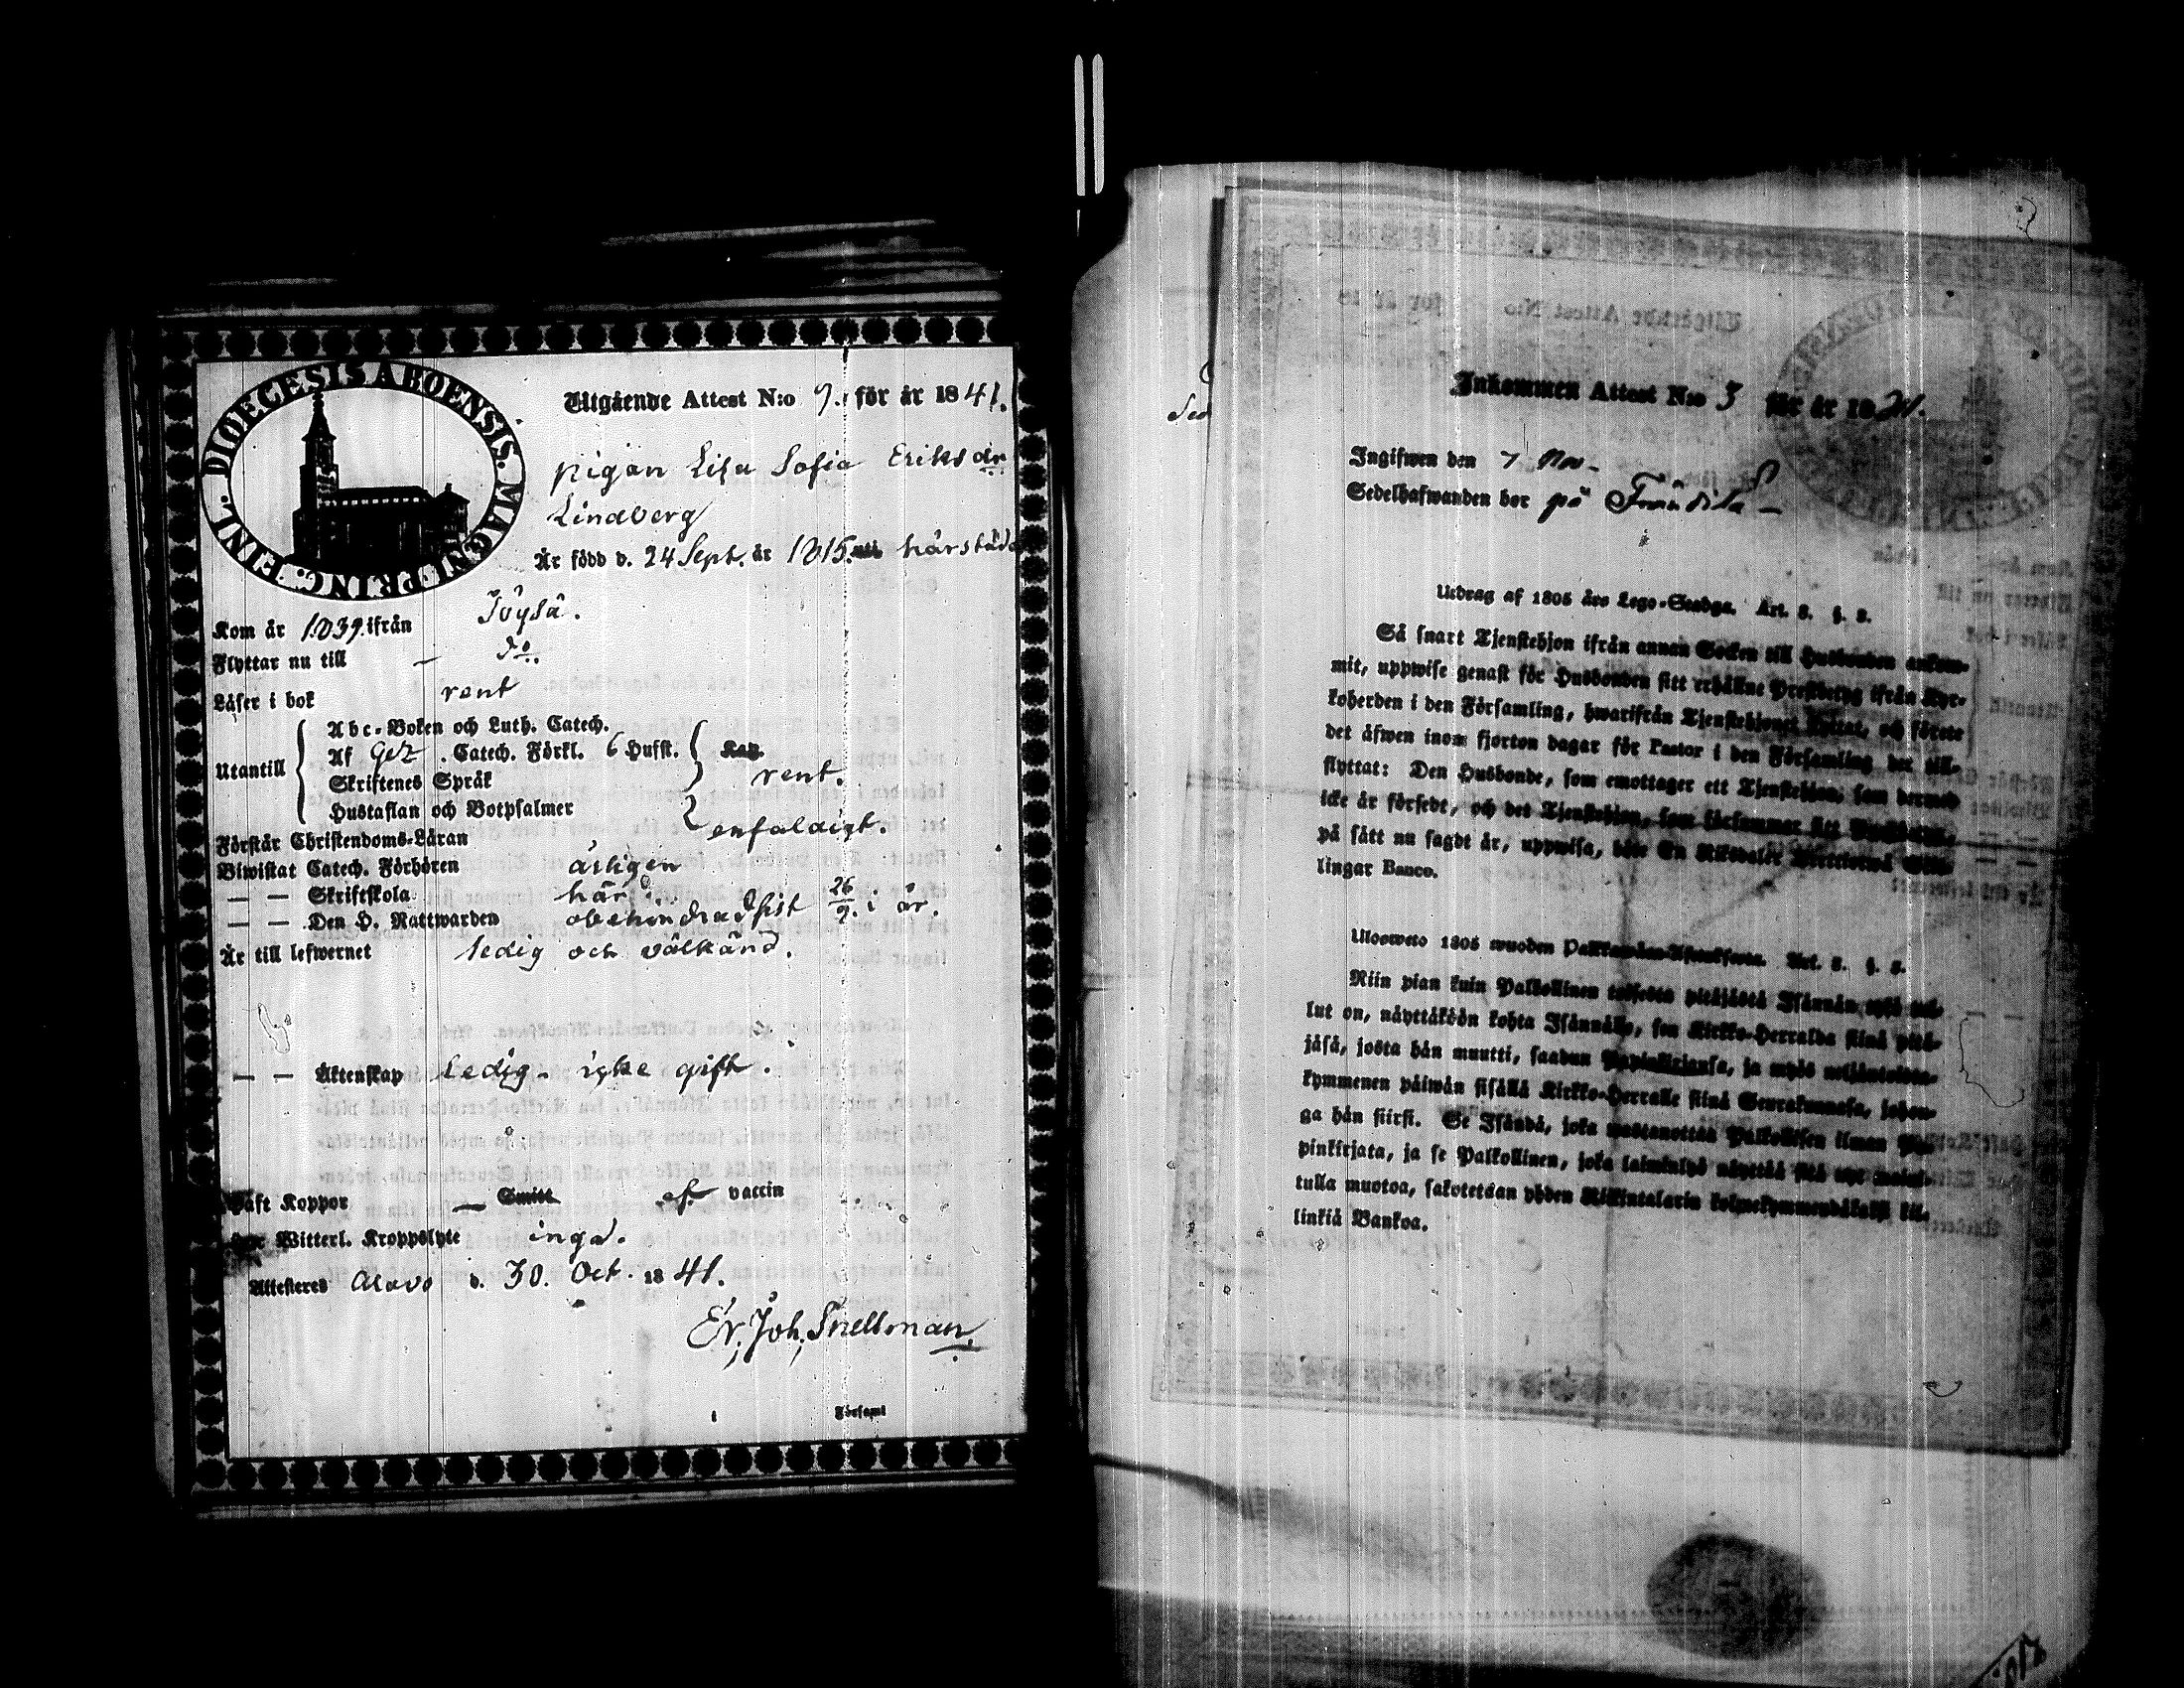 DIOECESIS ABOENSIS. MAGNI PRINC. FINL.
Utgående Attest N:o 9. för år 1841.
pigan Lisa Sofia Eriksdr
Lindberg
Är född d. 24 Sept. år 1815. härstädes
Kom år 1839. ifrån Töysä.
Flyttar nu till — do.
Läser i bok rent
Utantill
Abc-Boken och Luth. Catech.
Af Gez . Catech. Förkl. 6 Hufst.
Skriftenes Språk rent.
Hustaflan och Botpsalmer
Förstår Christendoms-Läran enfaldigt.
Biwistat Catech. Förhören årligen
— — Skriftskola här
— — Den H. Nattwarden obehindrad sist 26/9. i år.
Är till lefwernet ledig och välkänd.
— — Äktenskap Ledig - icke gift.
Haft Koppor — Smitt af vaccin
Har Witterl. Kroppslyte inga.
Attesteras Alavo d. 30. Oct. 1841.
Er. Joh. Snellman
i Församl
Inkommen Attest N:o 3 för år 1841.
Ingifwen den 7 Nov.
Sedelhafwanden bor på Frändilä
Utdrag af 1805 års Lego-Stadga. Art. 8. §. 8.
Så snart Tjenstehjon ifrån annan Socken till Husbonden ankom-
mit, uppwise genast för Husbonden sitt erhållne Prestbetyg ifrån Kyr-
koherden i den Församling, hwarifrån Tjenstehjonet flyttat, och förete
det äfwen inom fjorton dagar för Pastor i den Församling det till-
flyttat: Den Husbonde, som emottager ett Tjenstehjon, som dermed
icke är försedt, och det Tjenstehjon, som försummar sitt
på sätt nu sagdt är, uppwisa, böte En Riksdaler Trettiotwå Skil-
lingar Banco.
Ulosweto 1805 wuoden Palkkawäen-Asetuksesta. Art. 8. §. 8.
Niin pian kuin Palkollinen toisesta pitäjästä Isännän tykö tul-
lut on, näyttäköön kohta Isännälle, sen Kirkko-Herralda siinä pitä-
jäsä, josta hän muutti, saadun Papinkirjansa, ja myös neljäntoista-
kymmenen päiwän sisällä Kirkko-Herralle siinä Seurakunnasa, johon-
ga hän siirsi. Se Isändä, joka wastanottaa Palkollisen ilman Pa-
pinkirjata, ja se Palkollinen, joka laiminlyö näyttää sitä nyt mainit-
tulla muotoa, sakotetaan yhden Riikintalarin kolmekymmendäkaksi kil-
linkiä Bankoa.